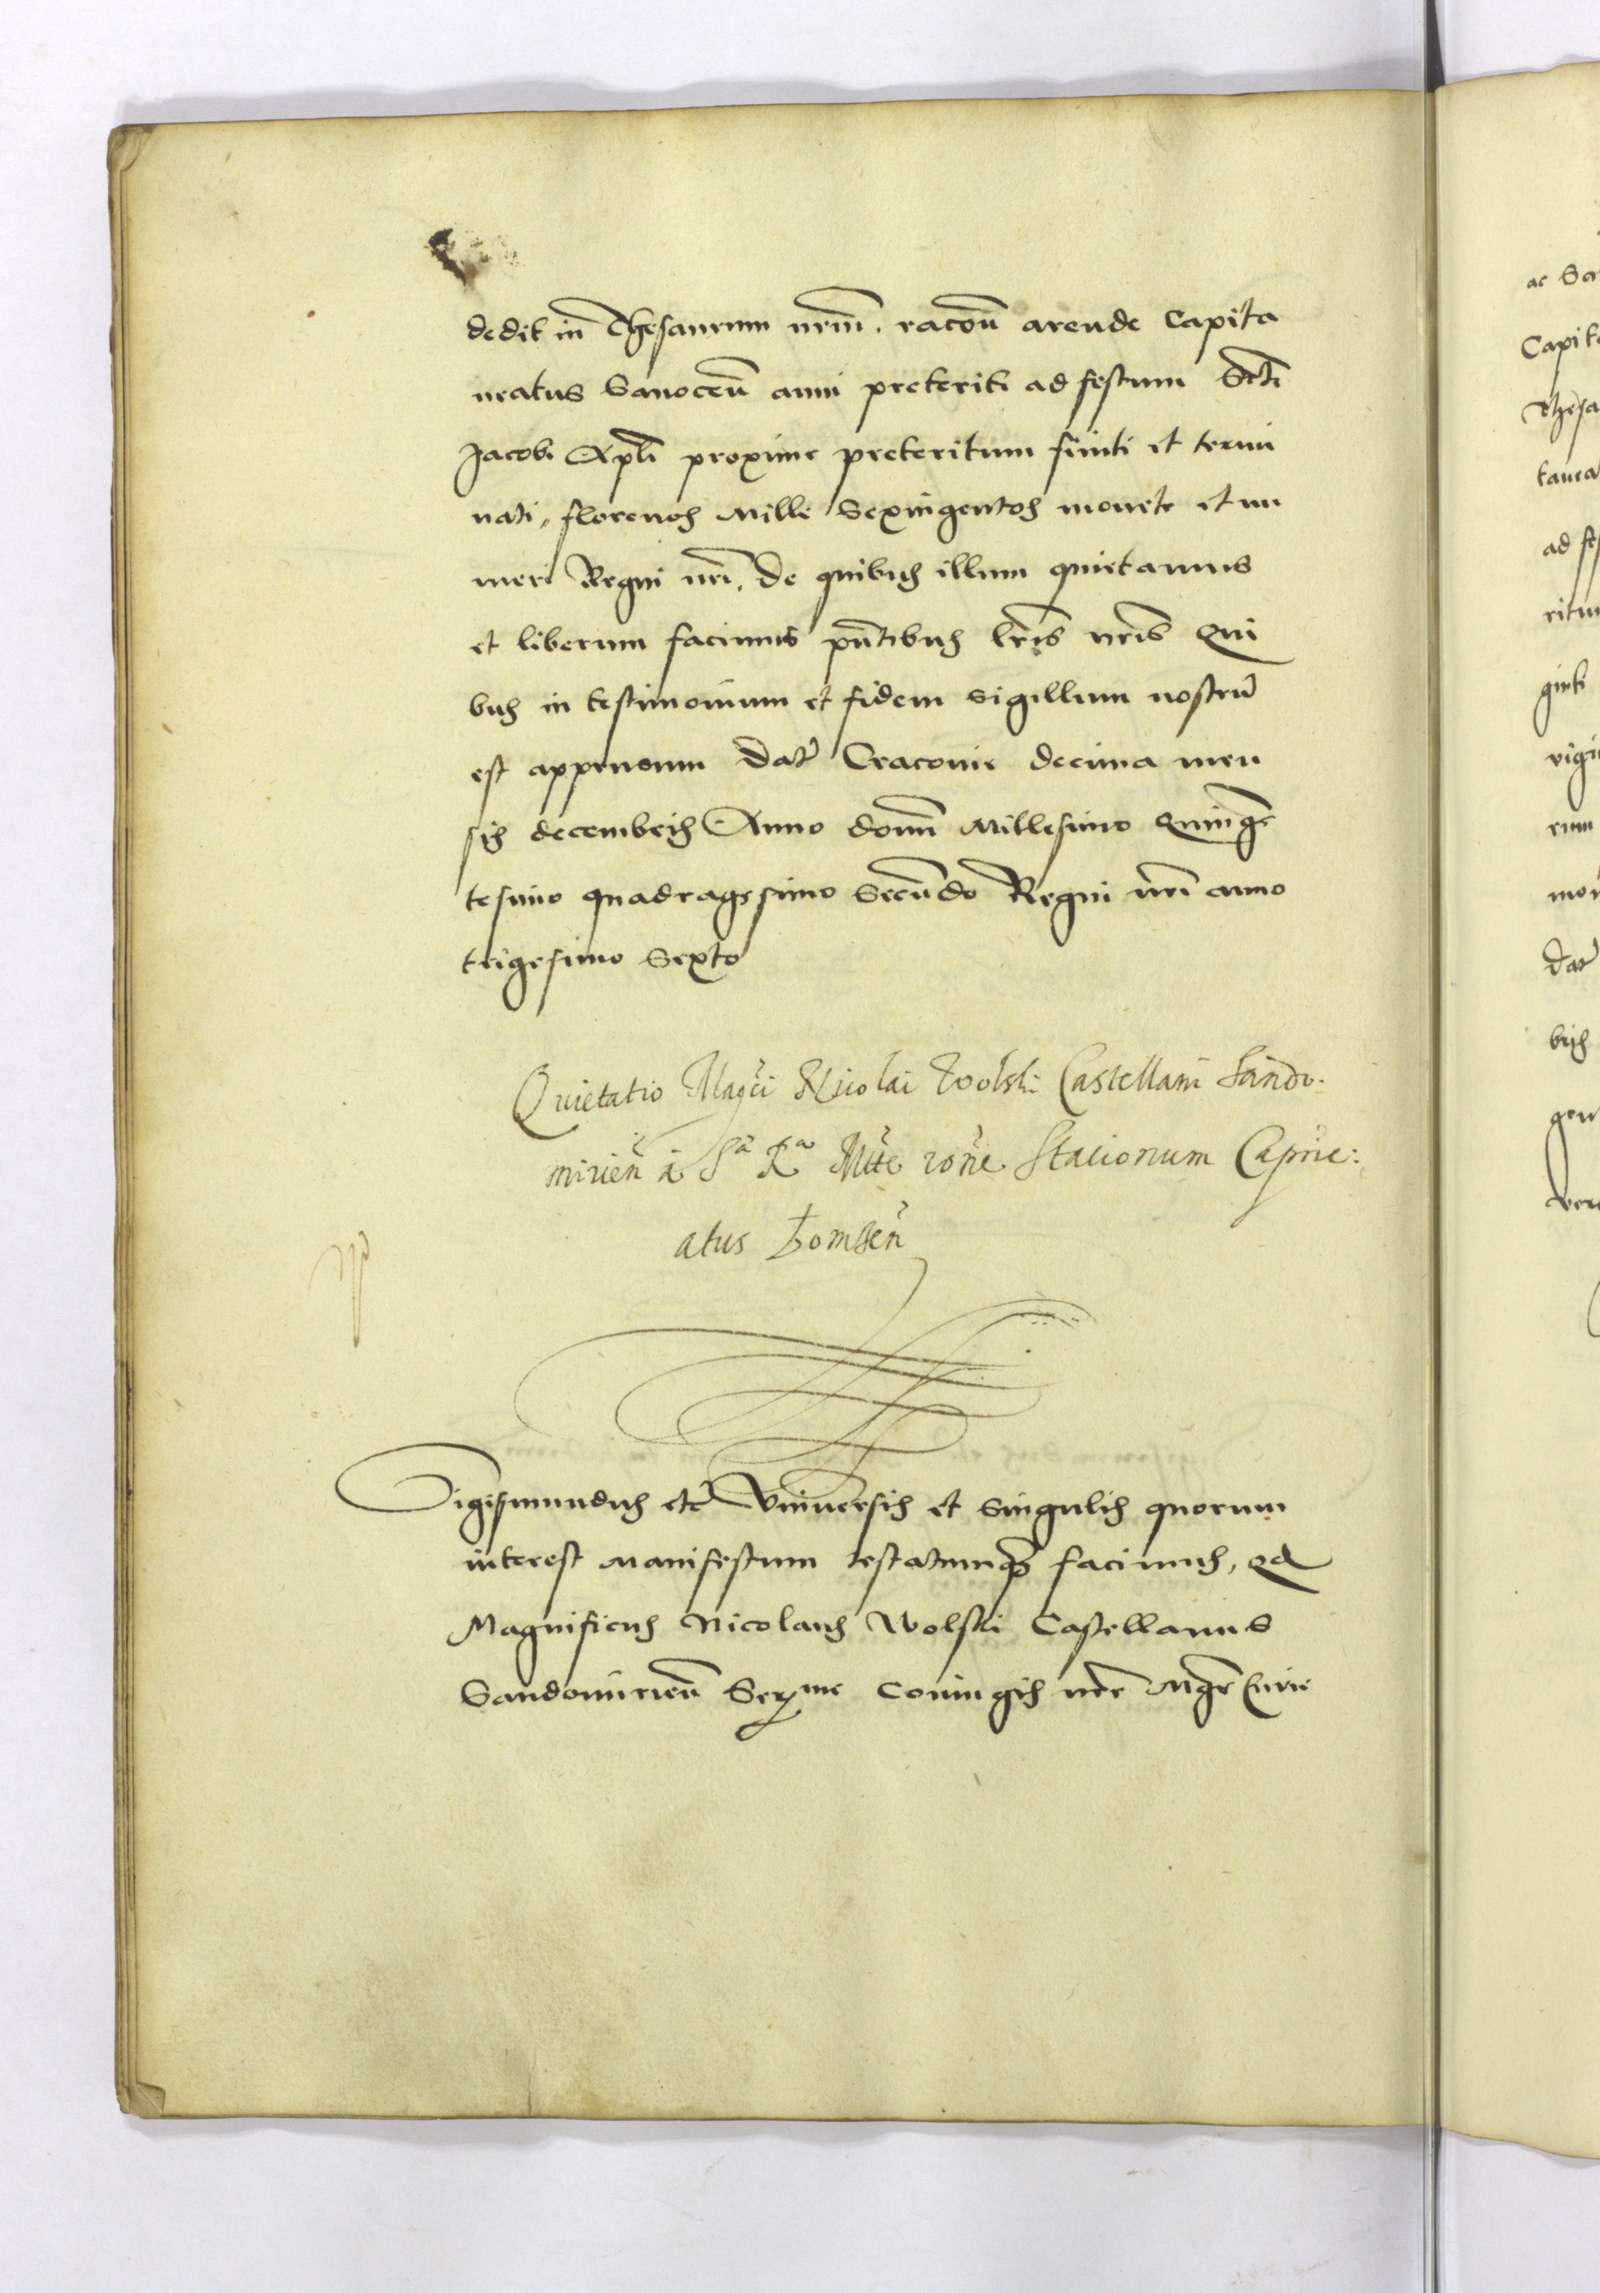 dedit in Thesaurum nrm̄. racōn arende Capita
neatus Sanoceñ anni preteriti ad festum Scti
Jacobi Apli proxime preteritum finiti et termi
nati, florenos Mille Sexingentos monete et nu
meri Regni nri, de quibus illum quietamus
et liberum facimus pñtibus lris nris Qui
bus in testimonium et fidem sigillum nostrũ
est appensum Dat Cracovie decima men
sis decembris Anno domi Millesimo Quinge
tesimo quadragesimo Secũdo Regni nri anno
trigesimo Sexto
Quietatio Magci Nicolai Wolski Castellani Sando-
mirieñ à Sa Ra Mtte rone Stacionum Capnie:
atus Lomzeñ
Sigismundus etc Universis et Singulis quorum
interest Manifestum testatumq facimus, qd
Magnificus Nicolaus Wolski Castellanus
Sandomirieñ Serme Coniugis nre Mgr Curie
ac
Capita
Thesa
tanea
ad fes
ritum
ginti
vigin
rum
mon
dat
bris
gen